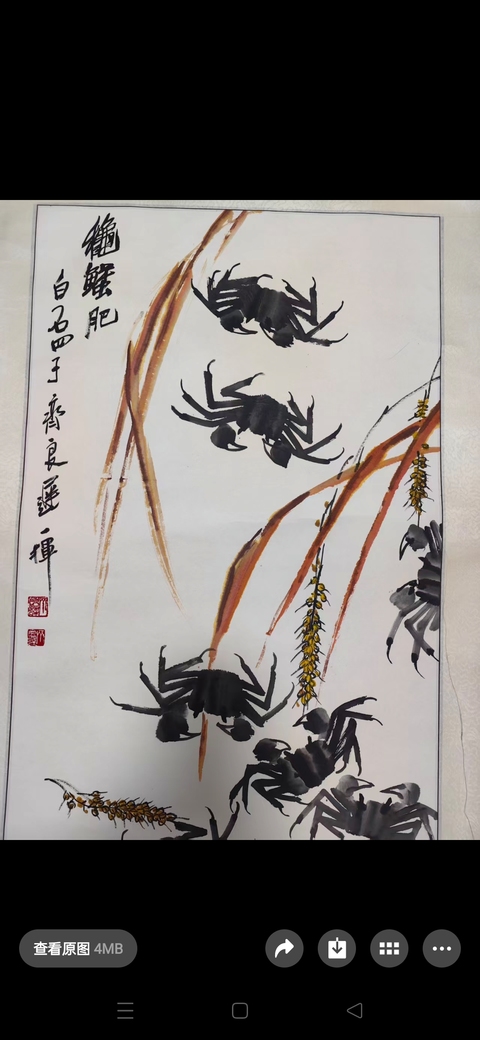 穐蟹肥
白石四子齊良遲一揮
查看原图 4MB